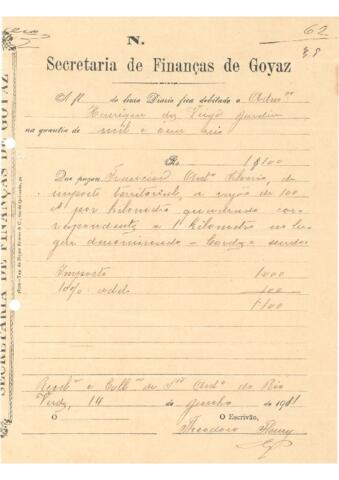 62
N.
Secretaria de Finanças de Goyaz
A fl do livro Diario fica debitado o Adm.or
Henrique da Veiga Jardim
na quantia de mil e cem reis
Rs 1$100
Que pagou Francisco Anto.
imposto territorial, a razão de 100
rs por kilometro quadrado corr
respondente a 1 kilometro no lu
gar denominado
Imposto 1000
10% add 100
1.100
Receb.a e Coll.m de Anto. do Rio
Verde, 14 de Junho de 1911
O O Escrivão,
Theodoro Fleury
SECRETARIA DE FINANÇAS DE GOYAZ